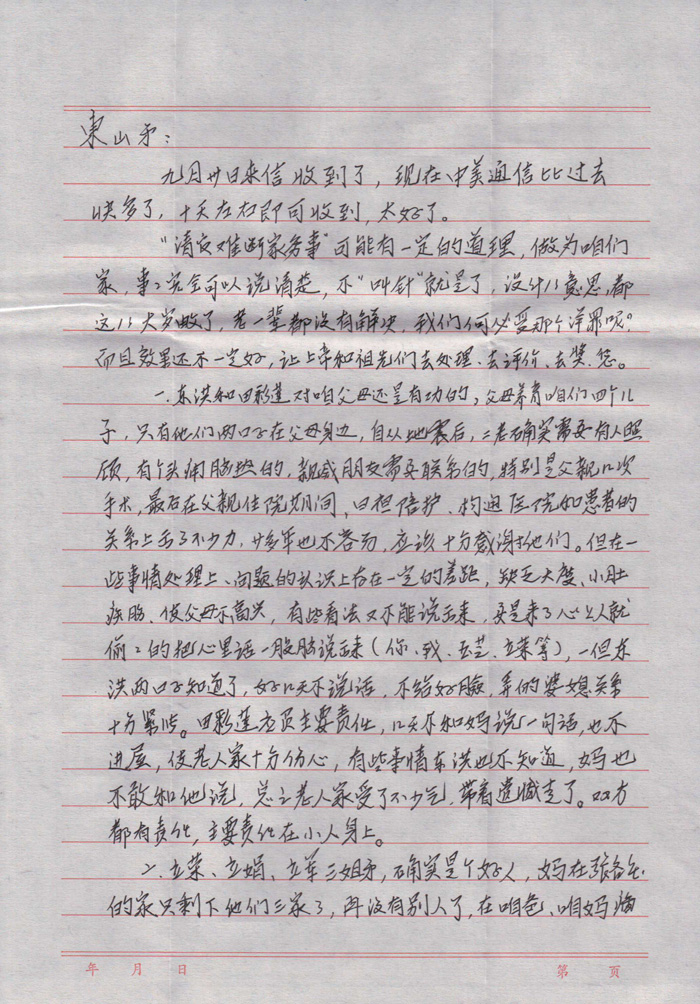 東山弟：
九月廿日来信收到了，现在中美通信比过去
快多了，十天左右即可收到，太好了。
“清官难断家务事”可能有一定的道理，做为咱们
家，事事完全可以说清楚，不“叫针”就是了，没什么意思，都
这么大岁数了，老一辈都没有解决，我们何必受那个洋罪呢？
而且效果还不一定好，让上帝和祖先们去处理、去评价、去奖、惩。
一、东洪和田彩莲对咱父母还是有功的，父母养育咱们四个儿
子，只有他们两口子在父母身边，自从地震后，二老确实需要有人照
顾，有个头痛脑热的，亲戚朋友需要联系的，特别是父亲几次
手术，最后在父亲住院期间，田担陪护、沟通医院和患者的
关系上出了不少力，廿多年也不容易，应该十分感谢他们。但在一
些事情处理上、问题的认识上存在一定的差距，缺乏大度、小肚
鸡肠、使父母不高兴，有些看法又不能说出来，要是来了心上人就
偷偷的把心里话一股脑说出来（你、我、玉芝、立荣等），一但东
洪两口子知道了，好几天不说话，不给好脸，弄的婆媳关系
十分紧张。田彩莲应负主要责任，几天不和妈说一句话，也不
进屋，使老人家十分伤心，有些事情东洪也不知道，妈也
不敢和他说，总之老人家受了不少气，带着遗憾走了。双方
都有责任，主要责任在小人身上。
二、立荣、立娟、立军三姐弟，确实是个好人，妈在张各庄
的家只剩下他们三家了，再没有别人了，在咱爸、咱妈
年 月 日 第 页